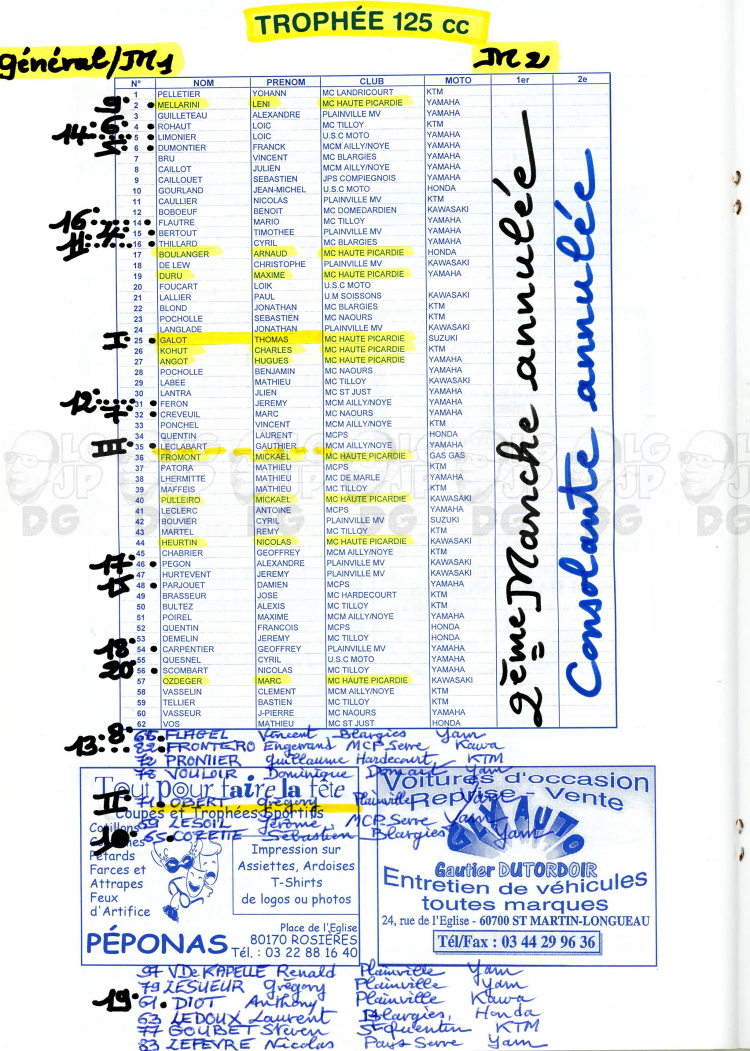 TROPHÉE 125 cc
général/M1 M2
N° NOM PRENOM CLUB MOTO 1er 2e
1 PELLETIER YOHANN MC LANDRICOURT KTM
9 2 MELLARINI LENI MC HAUTE PICARDIE YAMAHA
3 GUILLETEAU ALEXANDRE PLAINVILLE MV YAMAHA
6 4 ROHAUT LOIC MC TILLOY KTM
14 5 LIMONIER LOIC U.S.C MOTO YAMAHA
5 6 DUMONTIER FRANCK MCM AILLY/NOYE YAMAHA
7 BRU VINCENT MC BLARGIES YAMAHA
8 CAILLOT JULIEN MCM AILLY/NOYE YAMAHA
9 CAILLOUET SEBASTIEN JPS COMPIEGNOIS YAMAHA
10 GOURLAND JEAN-MICHEL U.S.C MOTO HONDA
11 CAULLIER NICOLAS PLAINVILLE MV KTM
12 BOBOEUF BENOIT MC DOMEDARDIEN KAWASAKI
16 14 FLAUTRE MARIO MC TILLOY YAMAHA
4 15 BERTOUT TIMOTHEE PLAINVILLE MV YAMAHA
11 16 THILLARD CYRIL MC BLARGIES YAMAHA
17 BOULANGER ARNAUD MC HAUTE PICARDIE HONDA
18 DE LEW CHRISTOPHE PLAINVILLE MV KAWASAKI
19 DURU MAXIME MC HAUTE PICARDIE YAMAHA
20 FOUCART LOIK U.S.C MOTO
21 LALLIER PAUL U.M SOISSONS KAWASAKI
22 BLOND JONATHAN MC BLARGIES KTM
23 POCHOLLE SEBASTIEN MC NAOURS KTM
24 LANGLADE JONATHAN PLAINVILLE MV KAWASAKI
I 25 GALOT THOMAS MC HAUTE PICARDIE SUZUKI
26 KOHUT CHARLES MC HAUTE PICARDIE KTM
27 ANGOT HUGUES MC HAUTE PICARDIE YAMAHA
28 POCHOLLE BENJAMIN MC NAOURS YAMAHA
29 LABEE MATHIEU MC TILLOY KAWASAKI
30 LANTRA JLIEN MC ST JUST YAMAHA
12 31 FERON JEREMY MCM AILLY/NOYE YAMAHA
7 32 CREVEUIL MARC MC NAOURS YAMAHA
33 PONCHEL VINCENT MCM AILLY/NOYE KTM
34 QUENTIN LAURENT MCPS HONDA
III 35 LECLABART GAUTHIER MCM AILLY/NOYE YAMAHA
36 FROMONT MICKAEL MC HAUTE PICARDIE GAS GAS
37 PATORA MATHIEU MCPS KTM
38 LHERMITTE MATHIEU MC DE MARLE YAMAHA
39 MAFFEIS MATHIEU MC TILLOY KTM
40 PULLEIRO MICKAEL MC HAUTE PICARDIE KAWASAKI
41 LECLERC ANTOINE MCPS YAMAHA
42 BOUVIER CYRIL PLAINVILLE MV SUZUKI
43 MARTEL REMY MC TILLOY KTM
44 HEURTIN NICOLAS MC HAUTE PICARDIE KAWASAKI
45 CHABRIER GEOFFREY MCM AILLY/NOYE KTM
17 46 PEGON ALEXANDRE PLAINVILLE MV KAWASAKI
47 HURTEVENT JEREMY PLAINVILLE MV KAWASAKI
15 48 PARJOUET DAMIEN MCPS YAMAHA
49 BRASSEUR JOSE MC HARDECOURT KTM
50 BULTEZ ALEXIS MC TILLOY KTM
51 POIREL MAXIME MCM AILLY/NOYE YAMAHA
52 QUENTIN FRANCOIS MCPS HONDA
53 DEMELIN JEREMY MC TILLOY HONDA
18 54 CARPENTIER GEOFFREY PLAINVILLE MV YAMAHA
55 QUESNEL CYRIL U.S.C MOTO YAMAHA
20 56 SCOMBART NICOLAS MC TILLOY KTM
57 OZDEGER MARC MC HAUTE PICARDIE KAWASAKI
58 VASSELIN CLEMENT MCM AILLY/NOYE KTM
59 TELLIER BASTIEN MC TILLOY KTM
60 VASSEUR J-PIERRE MC NAOURS YAMAHA
62 VOS MATHIEU MC ST JUST HONDA
2ème Manche annulée
Consolante annulée
8 FLAGEL Vincent Blargies Yam
13 82 FRONTERO MCP Serre Kawa
72 PRONIER Guillaume Hardecourt, KTM
78 VOULOIR Dominique Yam
II 71 OBERT Grégory Plainville Yam
69 LESOIL Jérôme MCP Serre Yam
10 65 COZETTE Sébastien Blargies Yam
Tout pour faire la fête
Coupes et Trophées Sportifs
Cotillons
Pétards
Farces et
Attrapes
Feux
d'Artifice
Impression sur
Assiettes, Ardoises
T-Shirts
de logos ou photos
PÉPONAS
Place de l'Eglise
80170 ROSIÈRES
Tél. : 03 22 88 16 40
Voitures d'occasion
Reprise - Vente
AUTO
Gautier DUTORDOIR
Entretien de véhicules
toutes marques
24, rue de l'Eglise - 60700 ST MARTIN-LONGUEAU
Tél/Fax : 03 44 29 96 36
97 V De KAPELLE Renald Plainville Yam
79 LESUEUR Grégory Plainville Yam
19 61 DIOT Anthony Plainville Kawa
63 LEDOUX Laurent Blargies, Honda
77 GOUBET Steven St Quentin KTM
83 LEFEVRE Nicolas Pays Serre Yam
LG JP DG